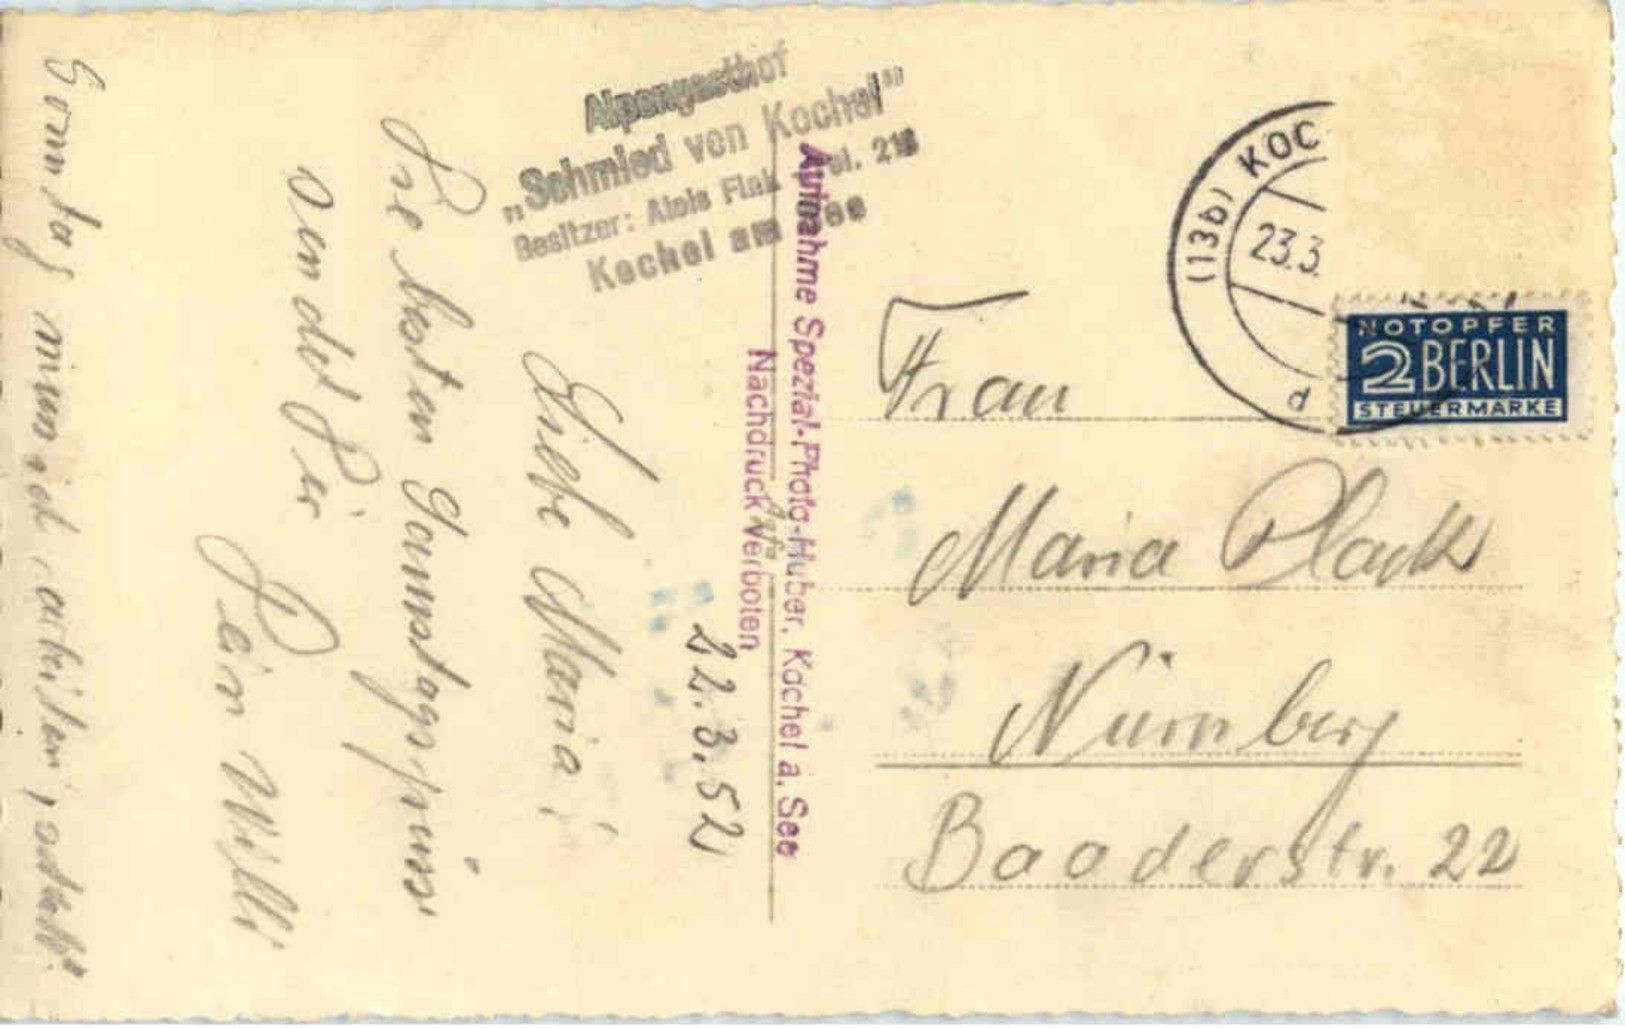 Alpengasthof
„Schmied von Kochel"
Besitzer: Alois Fink Tel. 218
Kochel am See
Aufnahme Spezial-Photo-Huber, Kochel a. See
Nachdruck verboten
22.3.52
Liebe Maria!
Die besten Samstagsgrüsse
sendet Dir
Dein Willi
Sonntag muss ich arbeiten,
(13b) KOC
23.3.
d
NOTOPFER
2 BERLIN
STEUERMARKE
Frau
Maria
Nürnberg
Baaderstr. 22